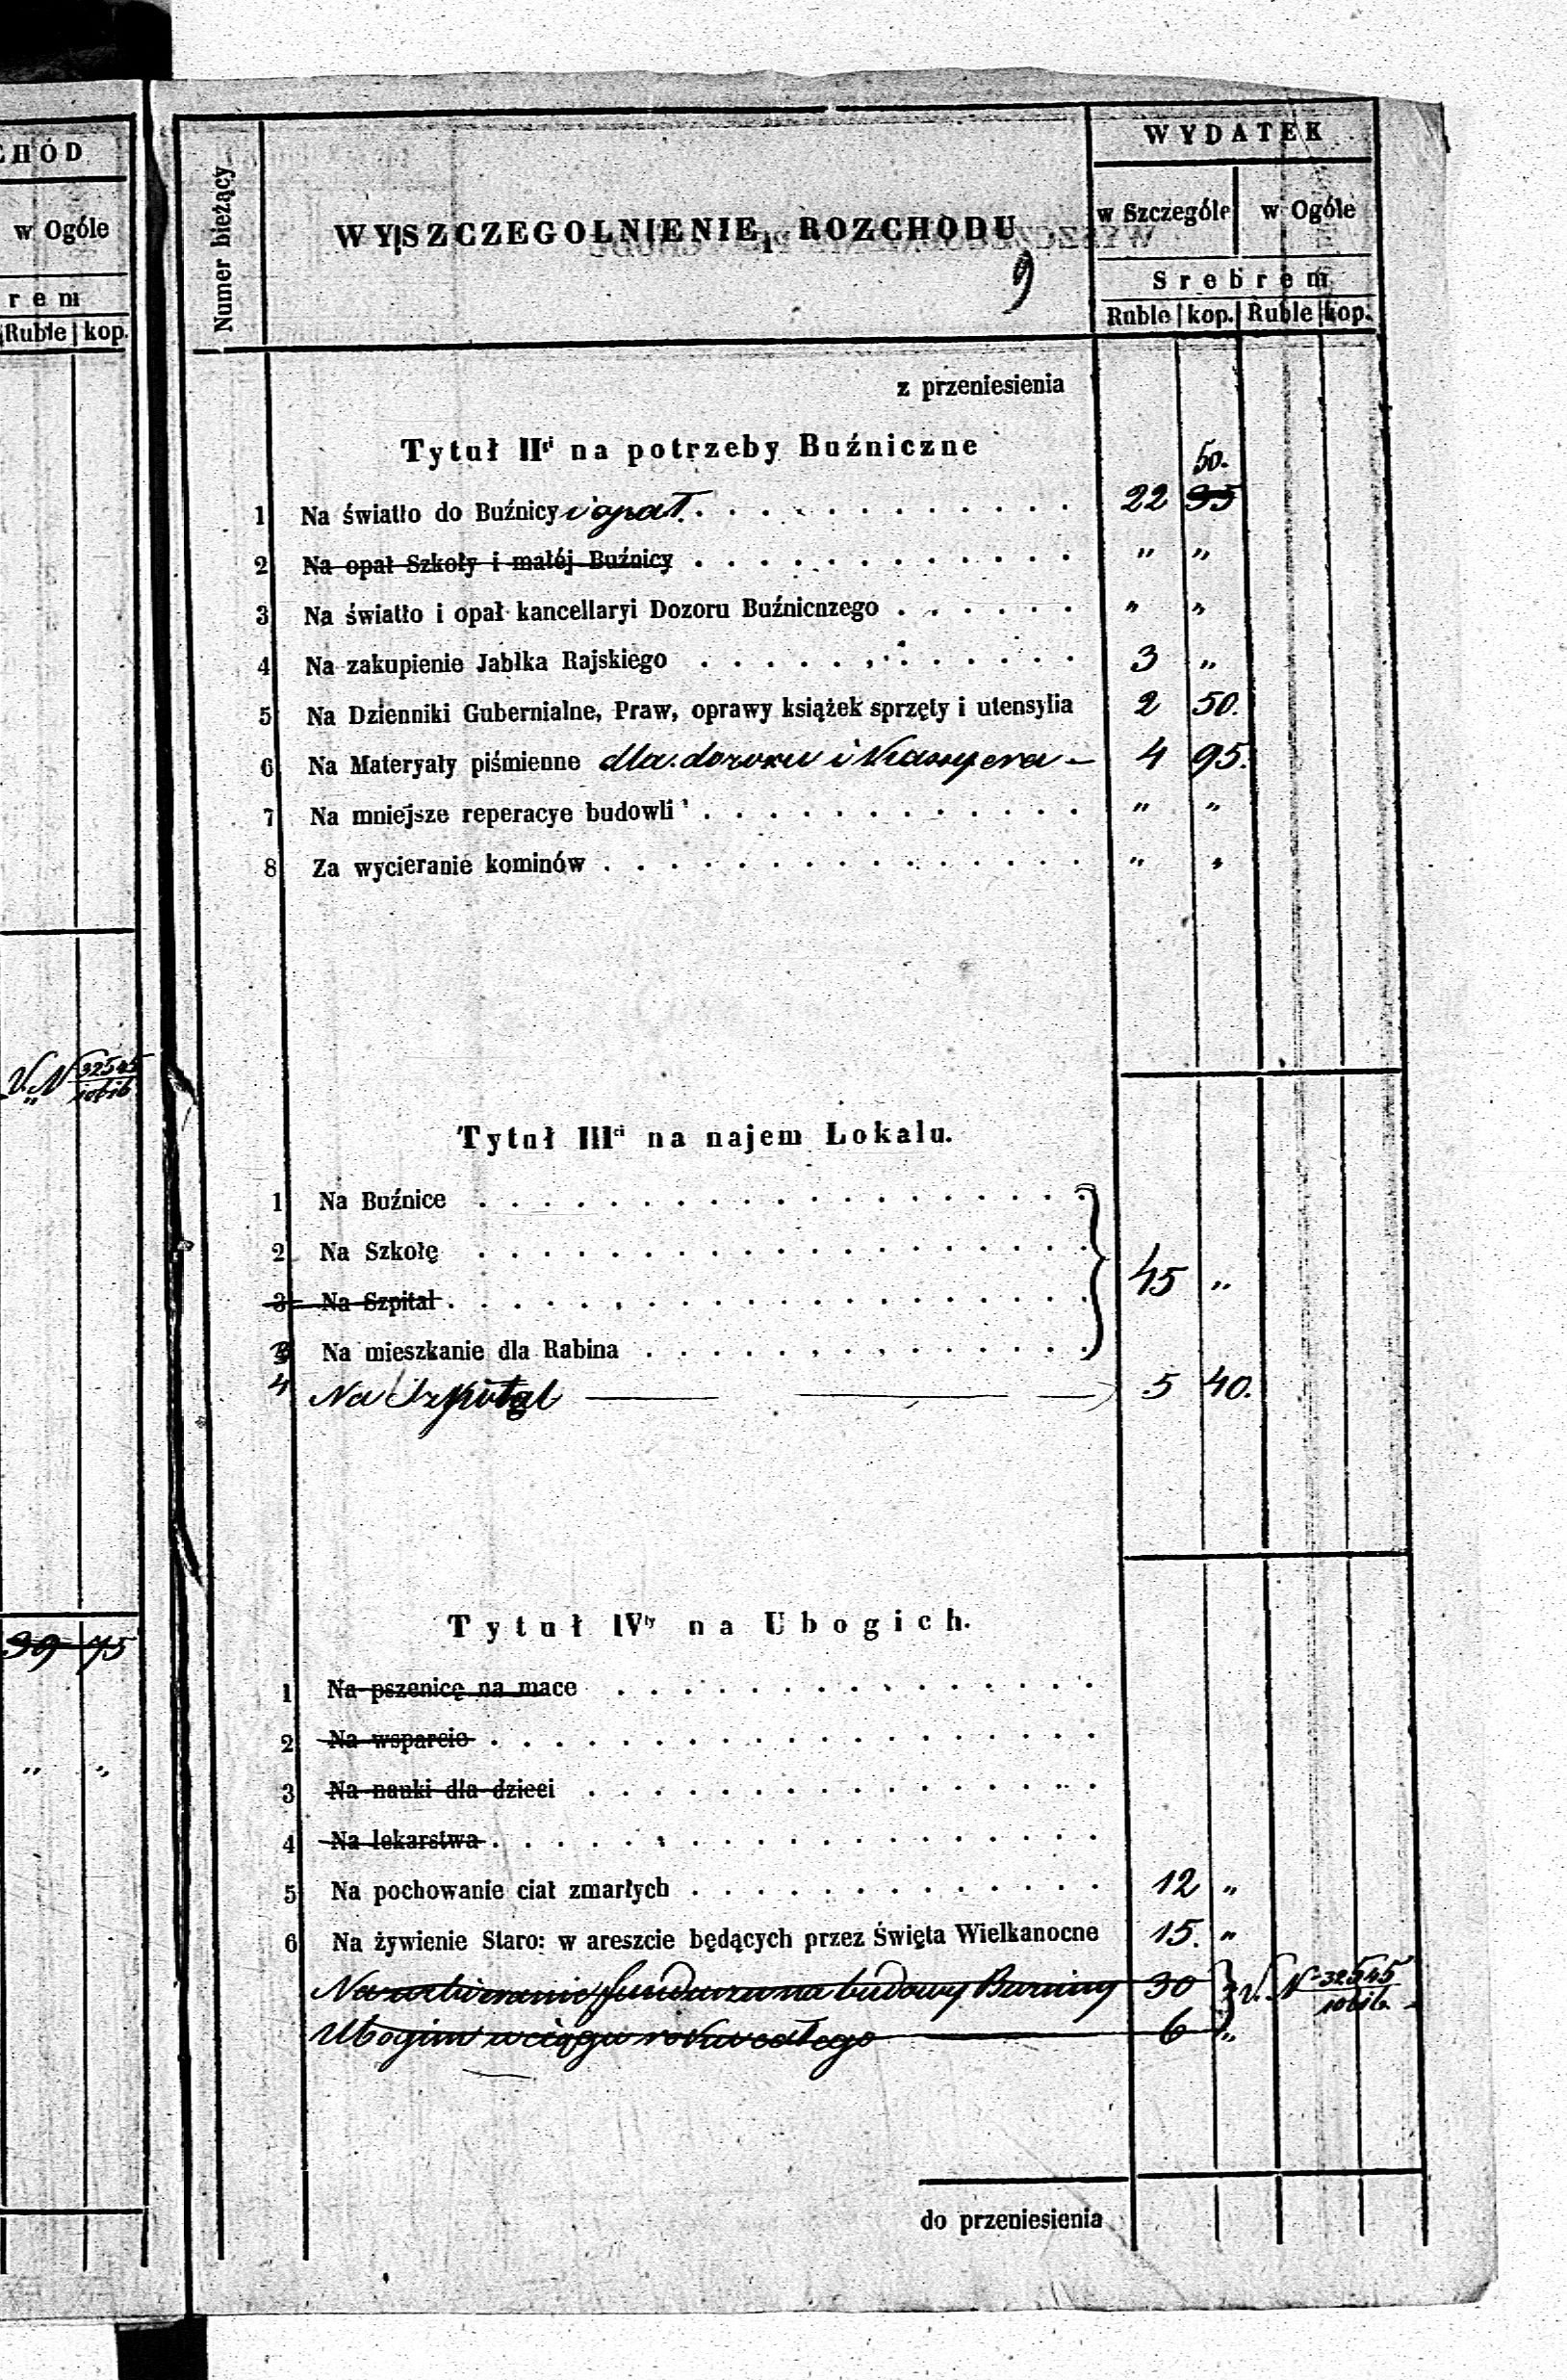 CHÓD
w Ogóle
r e m
Ruble kop.
V. N 32545
39 45
" "
Numer bieżący
WYSZCZEGOLNIENIE ROZCHODU
9
WYDATEK
w Szczególe w Ogóle
Srebrem
Ruble kop. Ruble kop.
z przeniesienia
Tytuł IIci na potrzeby Buźniczne
50.
1 Na światło do Buźnicy i opał . . . . . . . . . . . . 22 95
2 Na opał Szkoły i małéj Buźnicy . . . . . . . . . . . . " "
3 Na światło i opał kancellaryi Dozoru Buźnicnzego . . . . . . " "
4 Na zakupienie Jabłka Rajskiego . . . . . . . . . . . . 3 "
5 Na Dzienniki Gubernialne, Praw, oprawy książek sprzęty i utensylia 2 50.
6 Na Materyały piśmienne dla dozoru i Kassyera - 4 95.
7 Na mniejsze reperacye budowli . . . . . . . . . . . . " "
8 Za wycieranie kominów . . . . . . . . . . . . . . . " "
Tytuł IIIci na najem Lokalu.
1 Na Buźnice . . . . . . . . . . . . . . . . . . .
2 Na Szkołę . . . . . . . . . . . . . . . . . . .
45 "
3 Na Szpital . . . . . . . . . . . . . . . . . . . .
3 Na mieszkanie dla Rabina . . . . . . . . . . . . . .
4 Na Szpital 5 40.
Tytuł IVty na Ubogich.
1 Na pszenicę na mace . . . . . . . . . . . . . . .
2 Na wsparcie . . . . . . . . . . . . . . . . . . .
3 Na nauki dla dzieci . . . . . . . . . . . . . . . .
4 Na lekarstwa . . . . . . . . . . . . . . . . . . .
5 Na pochowanie ciał zmarłych . . . . . . . . . . . . . 12 "
6 Na żywienie Staro: w areszcie będących przez Święta Wielkanocne 15. "
fundusza na budowy 30 " V. N 32545
Ubogim w ciągu roku całego 6 "
do przeniesienia